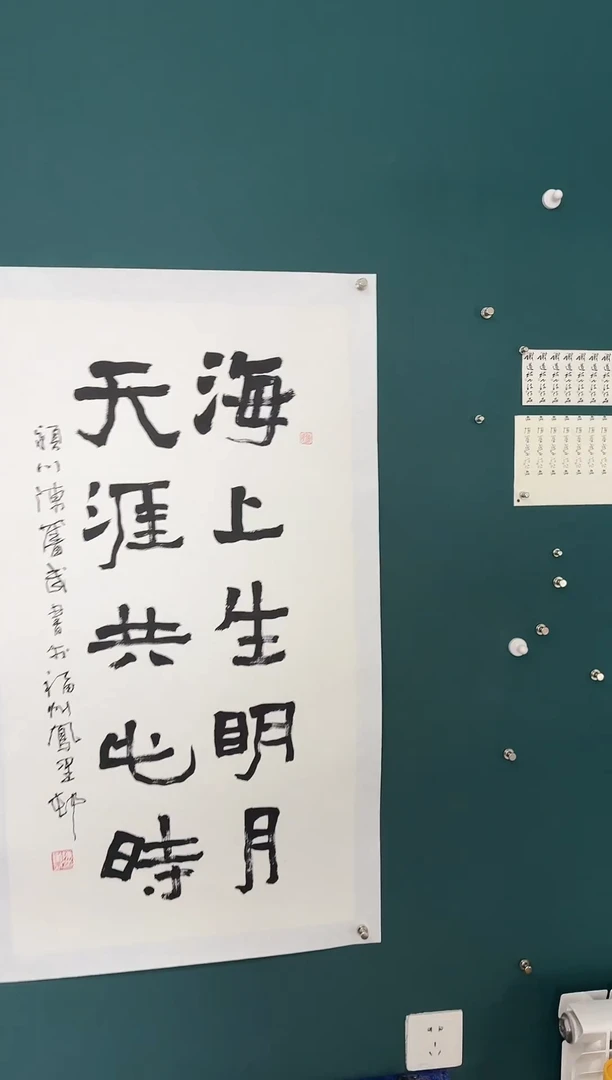 海上生明月
天涯共此時
潁川陳奮武書於福州鳳里邨